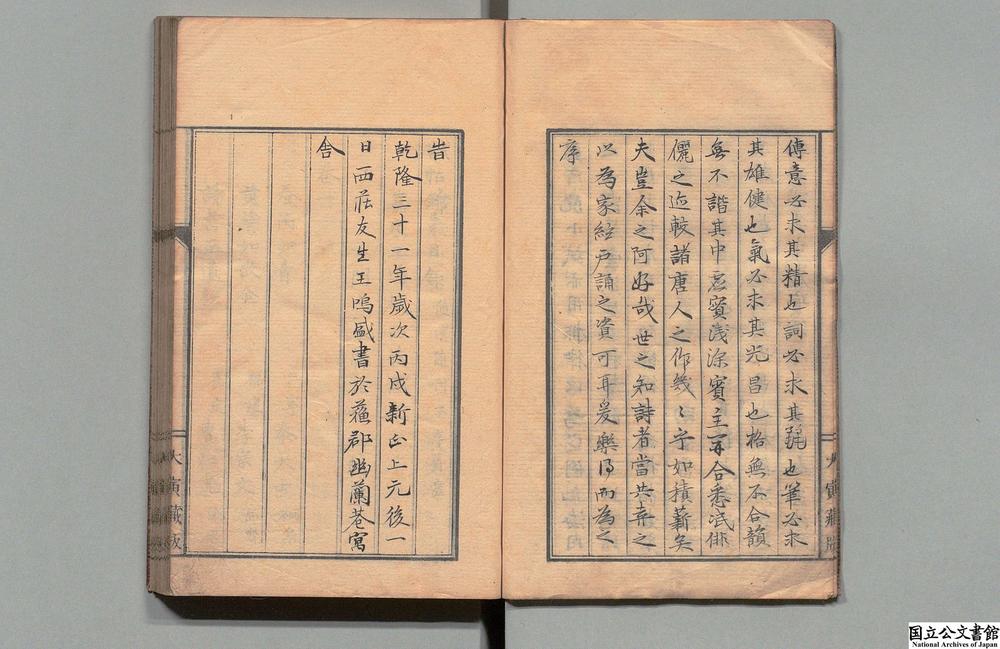 傳意必求其精也詞必求其麗也筆必求
其雄健也氣必求其光昌也格無不合韻
無不諧其中虛實淺深賓主開合悉泯俳
儷之迹較諸唐人之作幾〻乎如積薪矣
夫豈余之阿好哉世之知詩者當共弆之
以為家絃戶誦之資可耳爰樂得而為之
序
昔
乾隆三十一年歲次丙戌新正上元後一
日西莊友生王鳴盛書於蘓郡幽蘭巷寓
舍
寅藏板
寅藏板
国立公文書館
National Archives of Japan